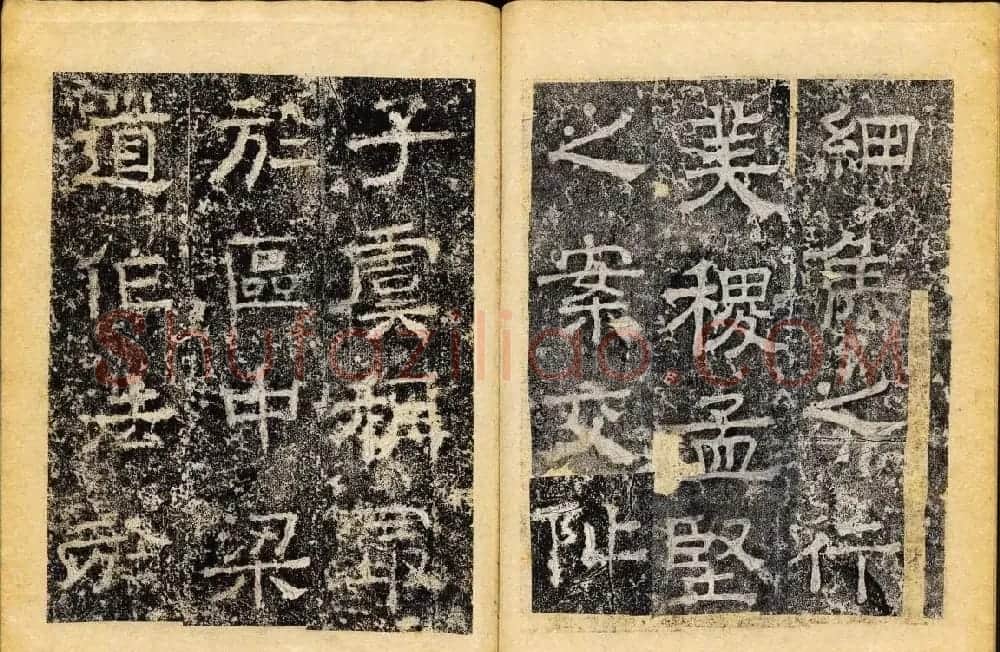 細侯之行
美稷孟堅
之案交阯
子虞稱
於區中梁
道作
Shufaziliao.COM